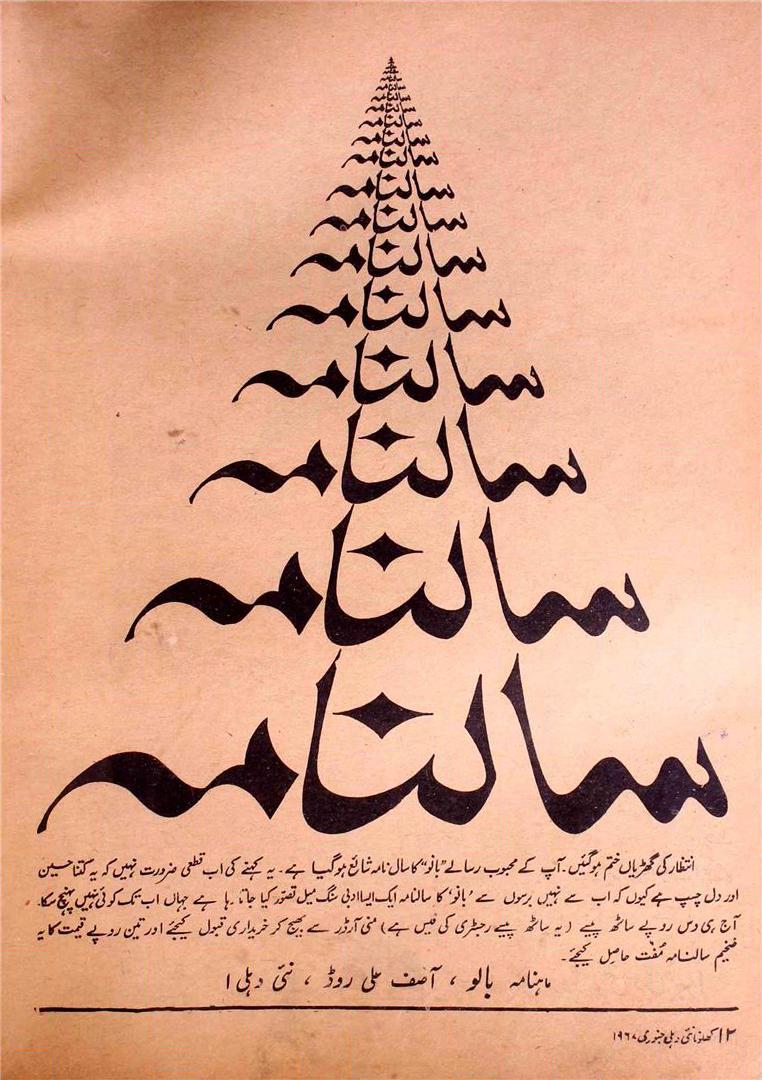 سالنامہ
سالنامہ
سالنامہ
سالنامہ
سالنامہ
سالنامہ
سالنامہ
سالنامہ
سالنامہ
سالنامہ
سالنامہ
سالنامہ
سالنامہ
سالنامہ
انتظار کی گھڑیاں ختم ہوگئیں۔ آپ کے محبوب رسالے "بانو" کا سال نامہ شائع ہوگیا ہے۔ یہ کہنے کی اب قطعی ضرورت نہیں کہ یہ کتنا حسین
اور دل چسپ ہے کیوں کہ اب سے نہیں برسوں سے 'بانو' کا سالنامہ ایک ایسا ادبی سنگ میل تصوّر کیا جاتا رہا ہے جہاں اب تک کوئی نہیں پہنچ سکا۔
آج ہی دس روپے ساٹھ پیسے (یہ ساٹھ پیسے رجسٹری کی فیس ہے) منی آرڈر سے بھیج کر خریداری قبول کیجئے اور تین روپے قیمت کا یہ
ضخیم سالنامہ مُفت حاصل کیجئے۔
ماہنامہ بانو ، آصف علی روڈ ، نئی دہلی ۱
۱۲ کھلونا نئی دہلی جنوری ۱۹۶۷